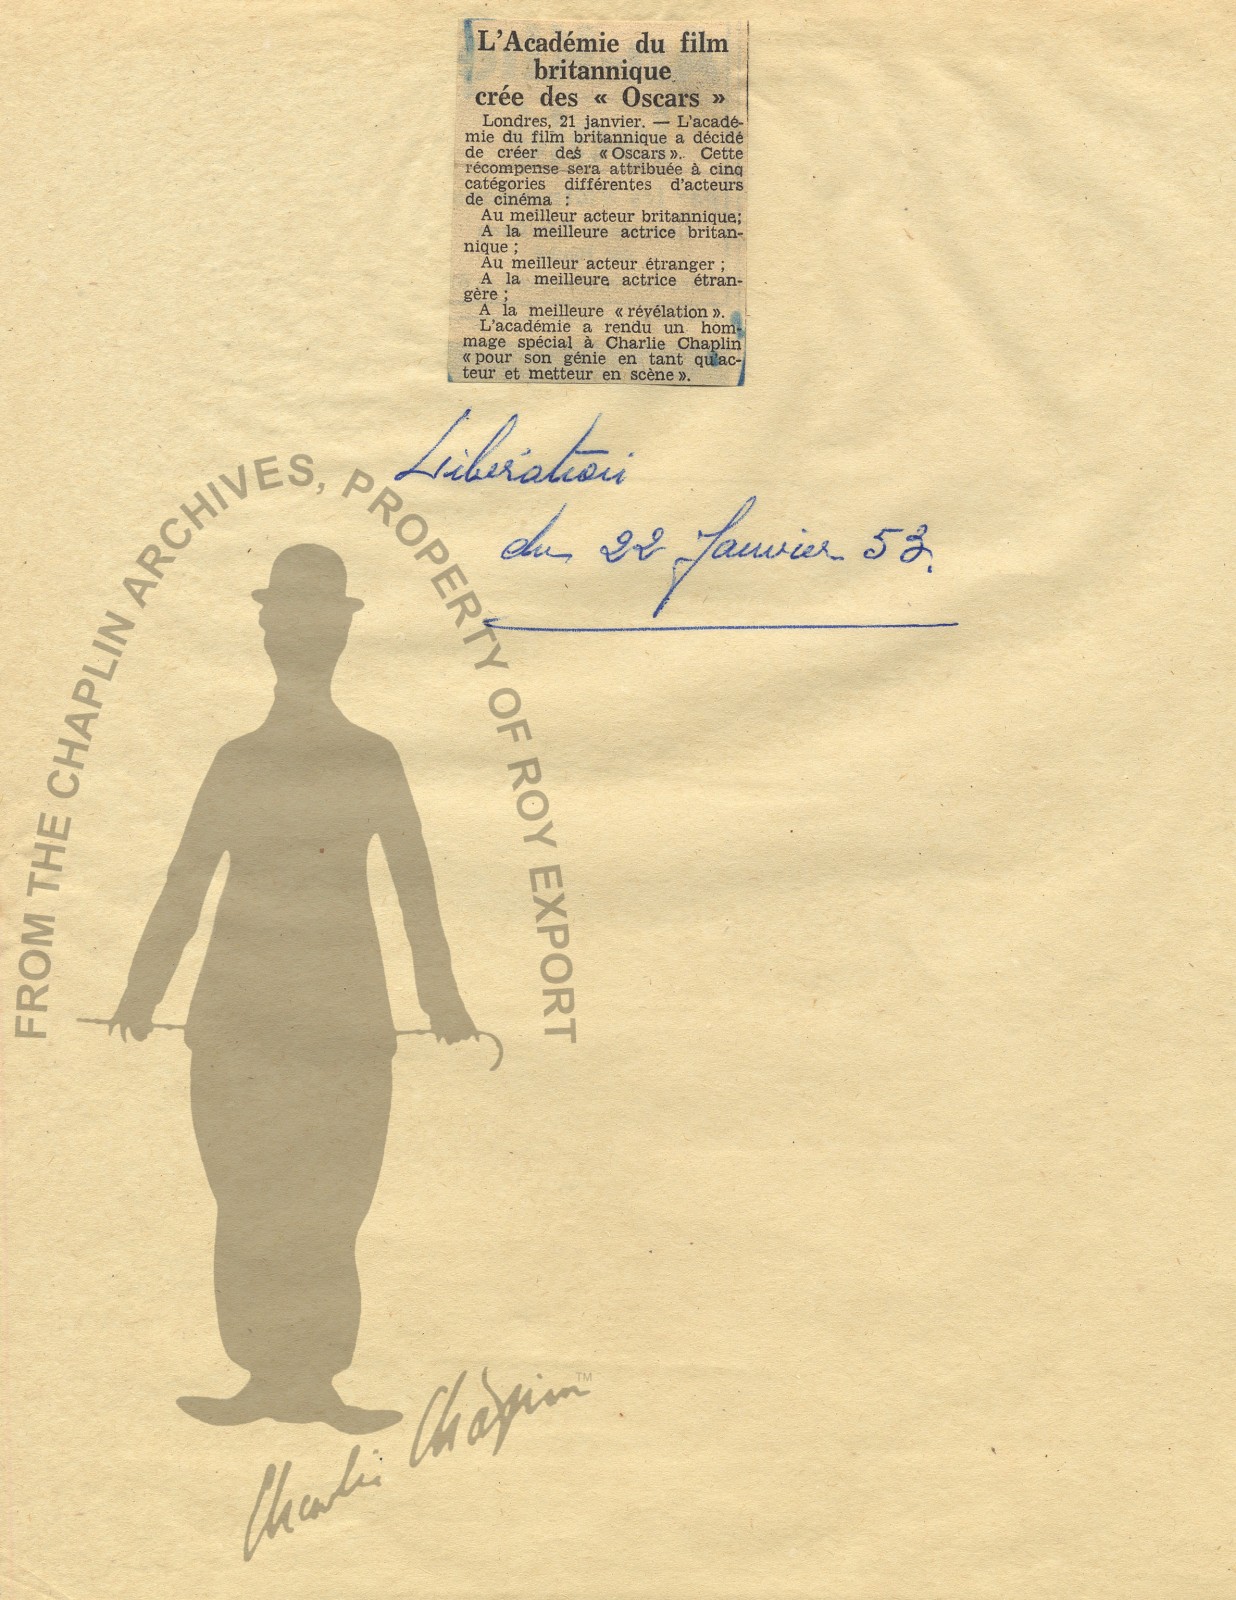 L'Académie du film
britannique
crée des « Oscars »
Londres, 21 janvier. — L'acadé-
mie du film britannique a décidé
de créer des «Oscars». Cette
récompense sera attribuée à cinq
catégories différentes d'acteurs
de cinéma :
Au meilleur acteur britannique;
A la meilleure actrice britan-
nique ;
Au meilleur acteur étranger ;
A la meilleure actrice étran-
gère ;
A la meilleure « révélation ».
L'académie a rendu un hom-
mage spécial à Charlie Chaplin
« pour son génie en tant qu'ac-
teur et metteur en scène ».
Libération
du 22 Janvier 53.
FROM THE CHAPLIN ARCHIVES, PROPERTY OF ROY EXPORT
Charlie Chaplin TM